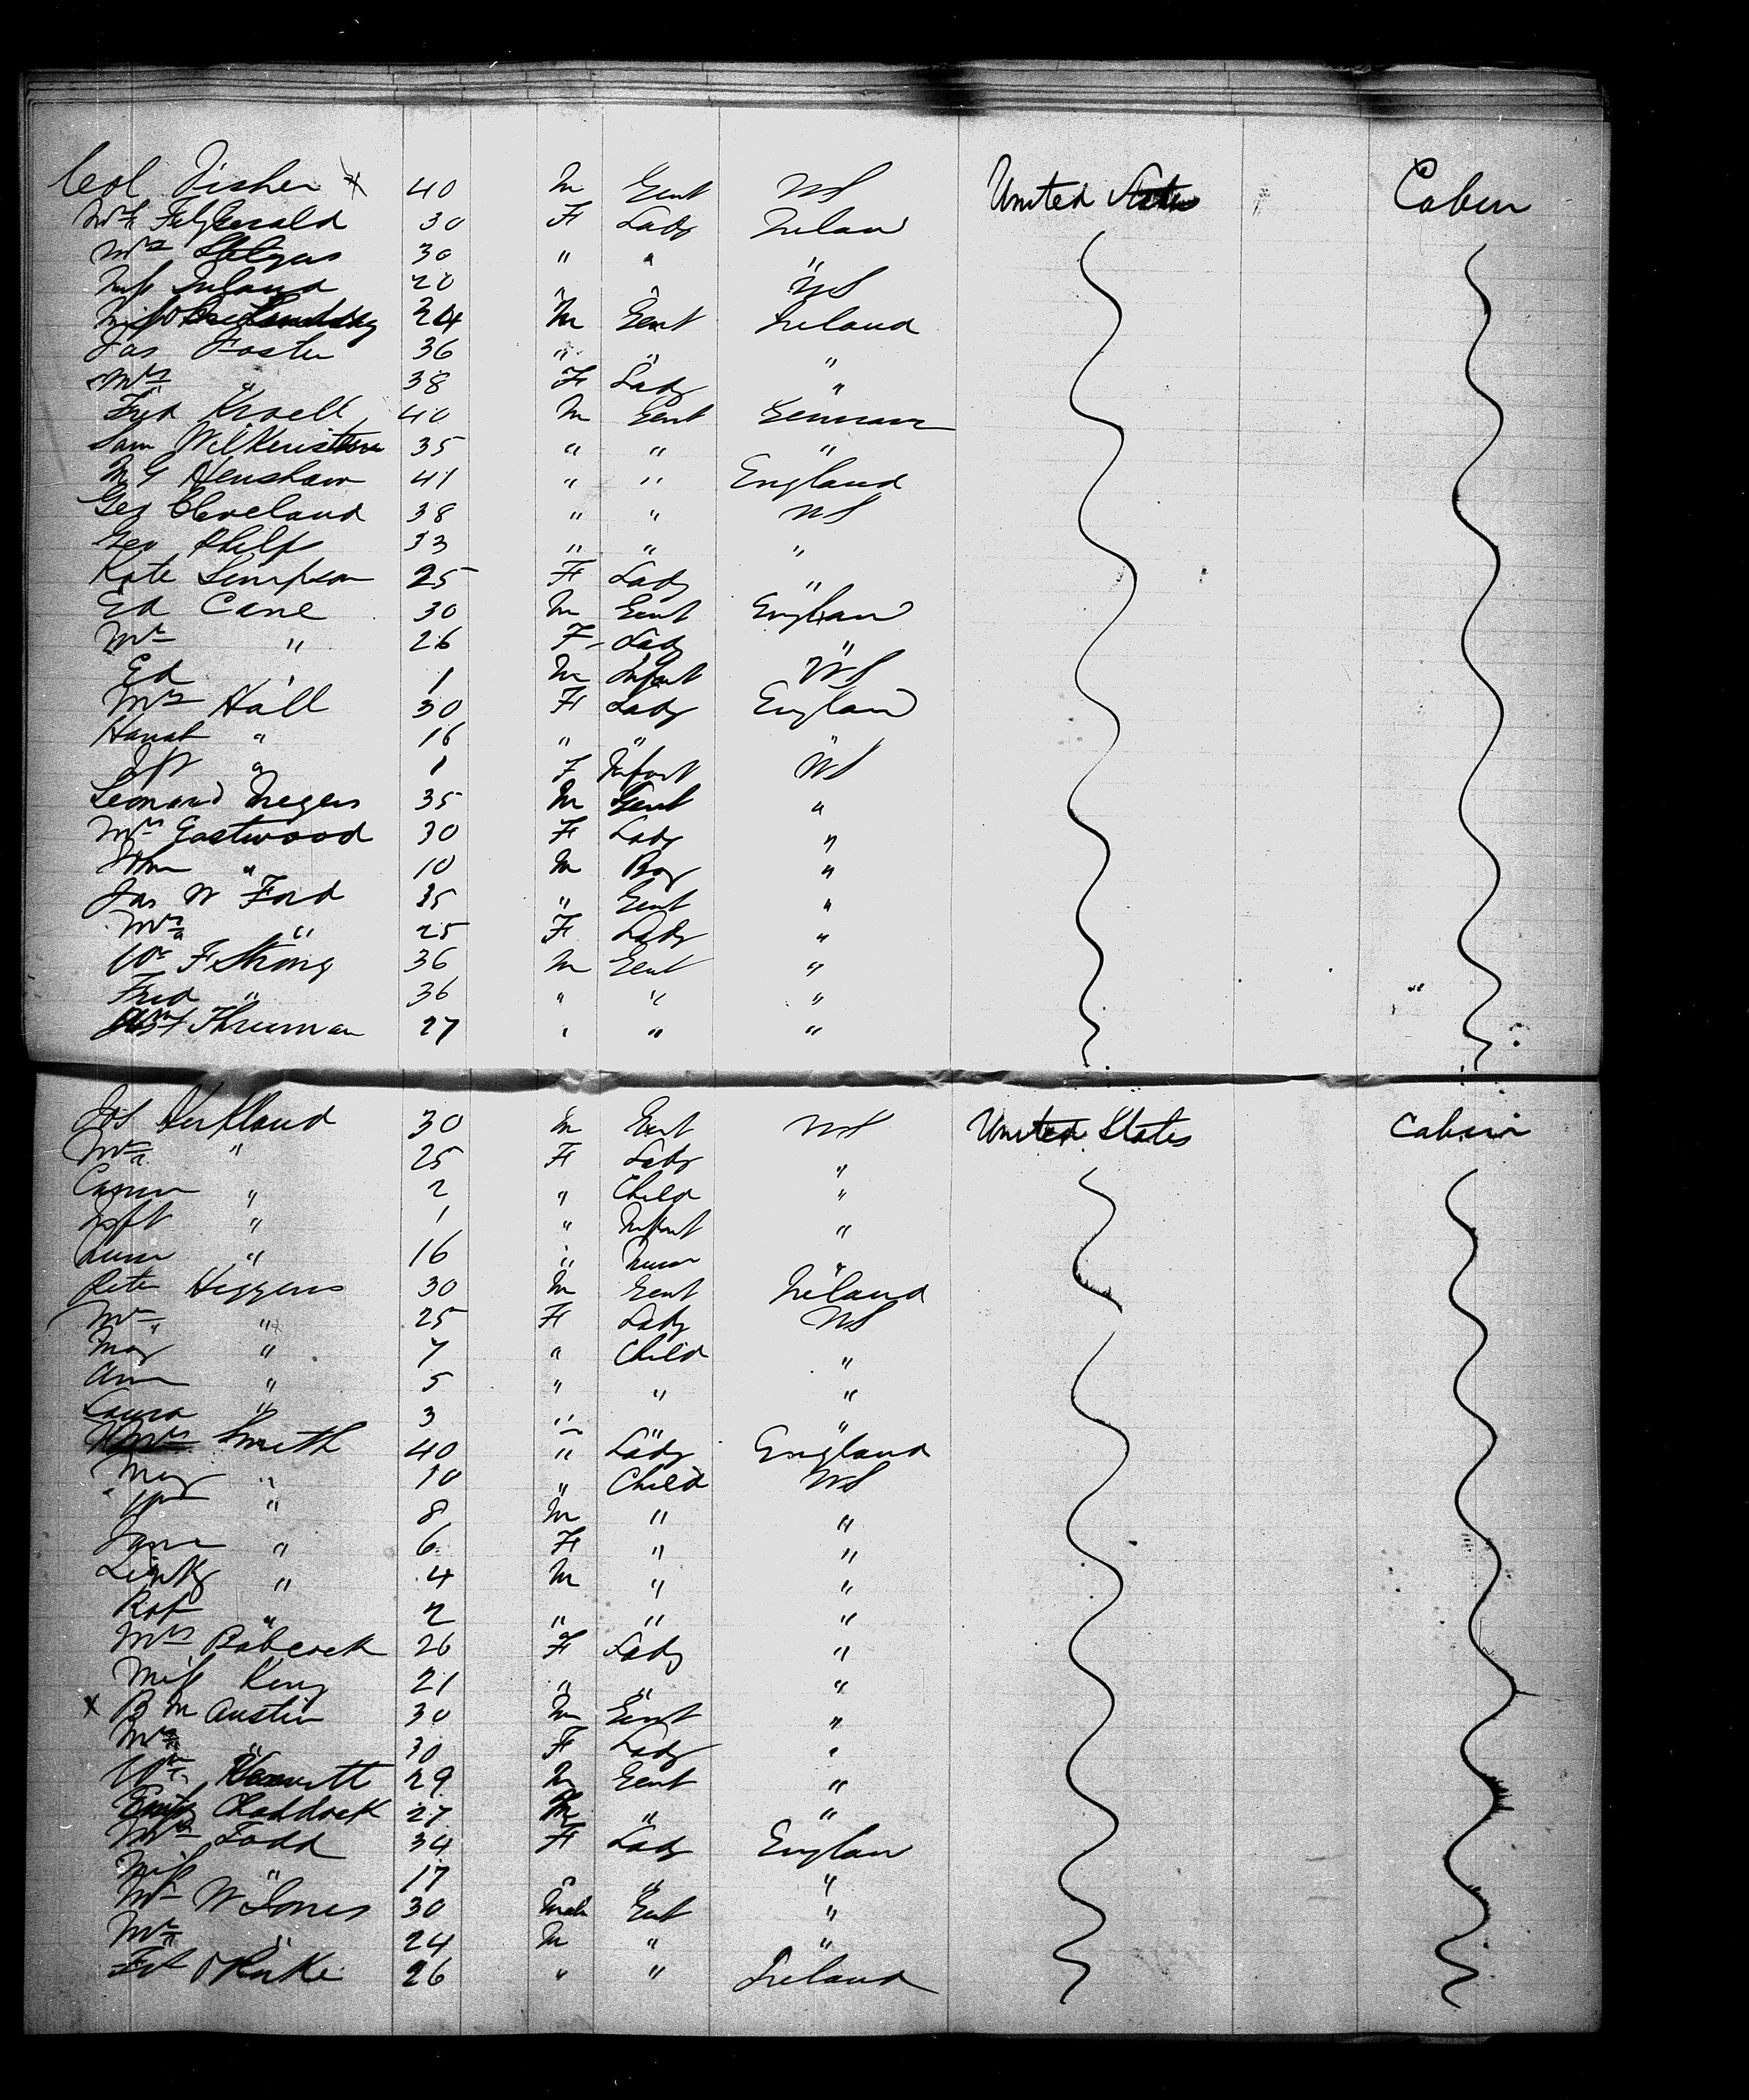 Col Fisher 40 m Gent US United States Cabin
Mrs FitzGerald 30 F Lady Irelan
Mrs 30 " "
Miss 20 " " US
24 m Gent Ireland
Jas Foster 36 " " "
Mrs " 38 F Lady "
Fred Kroell 40 m Gent German
Sam 35 " " "
M G Henshaw 41 " " England
Geo Cleveland 38 " " US
Geo Phelps 33 " " "
Kate Simpson 25 F Lady "
Ed Cane 30 m Gent Englan
Mrs " 26 F Lady "
Ed " 1 m Infant US
Mrs Hall 30 F Lady Englan
Hanah " 16 " " "
Inft " 1 F Infant US
Leonard 35 m Gent "
Mrs Eastwood 30 F Lady "
John " 10 m Boy "
Jas W Ford 35 " Gent "
Mrs " 25 F Lady "
Wm F Strong 36 m Gent "
Fred " 36 " " "
Thurman 27 " " "
Jos 30 m Gent US United States Cabin
Mrs " 25 F Lady "
" 2 " Child "
Inft " 1 " Infant "
" 16 " Nurse "
Peter Higgens 30 m Gent Ireland
Mrs " 25 F Lady US
May " 7 " Child "
Ann " 5 " " "
Laura " 3 " " "
Mrs Smith 40 " Lady England
May " 10 " Child US
Wm " 8 m " "
Jane " 6 F " "
" 4 m " "
" 2 " " "
Mrs Babcock 26 F Lady "
Miss King 21 " " "
x B M Austin 30 m Gent "
Mrs " 30 F Lady "
Wm 29 m Gent "
Chaddock 27 m " "
Mrs Todd 34 F Lady Englan
Miss " 17 " " "
Mr W Jones 30 Male Gent "
Mrs " 24 m " "
26 " " Ireland